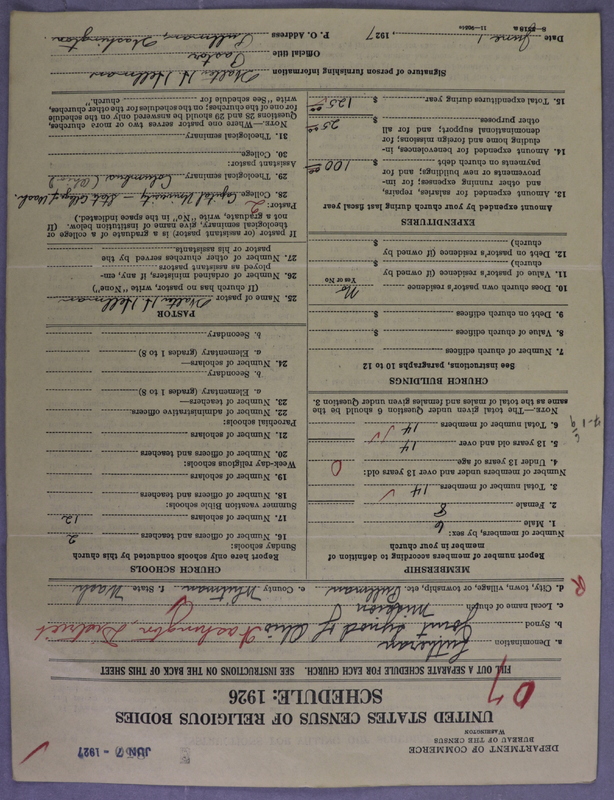 DEPARTMENT OF COMMERCE
BUREAU OF THE CENSUS
WASHINGTON
JUN 7 - 1927
UNITED STATES CENSUS OF RELIGIOUS BODIES
SCHEDULE: 1926
FILL OUT A SEPARATE SCHEDULE FOR EACH CHURCH. SEE INSTRUCTIONS ON THE BACK OF THIS SHEET
a. Denomination Lutheran
b. Synod Joint Synod of Ohio Washington District
c. Local name of church Mission
d. City, town, village, or township, etc. Pullman e. County Whitman f. State Wash
MEMBERSHIP
Report number of members according to definition of
member in your church
Number of members, by sex:
1. Male 6
2. Female 8
3. Total number of members 14
Number of members under and over 13 years old:
4. Under 13 years of age 0
5. 13 years old and over 14
6. Total number of members 14
NOTE.—The total given under Question 6 should be the
same as the total of males and females given under Question 3.
CHURCH BUILDINGS
See instructions, paragraphs 10 to 12
7. Number of church edifices
8. Value of church edifices $
9. Debt on church edifices $
10. Does church own pastor's residence No
Yes or No
11. Value of pastor's residence (if owned by
church) $
12. Debt on pastor's residence (if owned by
church) $
EXPENDITURES
Amount expended by your church during last fiscal year
13. Amount expended for salaries, repairs,
and other running expenses; for im-
provements or new buildings; and for
payments on church debt $ 100 00
14. Amount expended for benevolences, in-
cluding home and foreign missions; for
denominational support; and for all
other purposes $ 25 00
15. Total expenditures during year $ 125 00
CHURCH SCHOOLS
Report here only schools conducted by this church
Sunday schools:
16. Number of officers and teachers 2
17. Number of scholars 12
Summer vacation Bible schools:
18. Number of officers and teachers
19. Number of scholars
Week-day religious schools:
20. Number of officers and teachers
21. Number of scholars
Parochial schools:
22. Number of administrative officers
23. Number of teachers—
a. Elementary (grades 1 to 8)
b. Secondary
24. Number of scholars—
a. Elementary (grades 1 to 8)
b. Secondary
PASTOR
25. Name of pastor Walter H. Hellman
(If church has no pastor, write "None")
26. Number of ordained ministers, if any, em-
ployed as assistant pastors
27. Number of other churches served by the
pastor or his assistants 2
If pastor (or assistant pastor) is a graduate of a college or
theological seminary, give name of institution below. (If
not a graduate, write "No" in the space indicated.)
Pastor:
28. College Capital University — State College of Wash.
29. Theological seminary Columbus, (Ohio)
Assistant pastor:
30. College
31. Theological seminary
NOTE.—Where one pastor serves two or more churches,
Questions 28 and 29 should be answered only on the schedule
for one of the churches; on the schedule for the other churches,
write "See schedule for church."
Signature of person furnishing information Walter H. Hellman
Official title Pastor
P. O. Address Pullman, Washington.
Date June 1, 1927